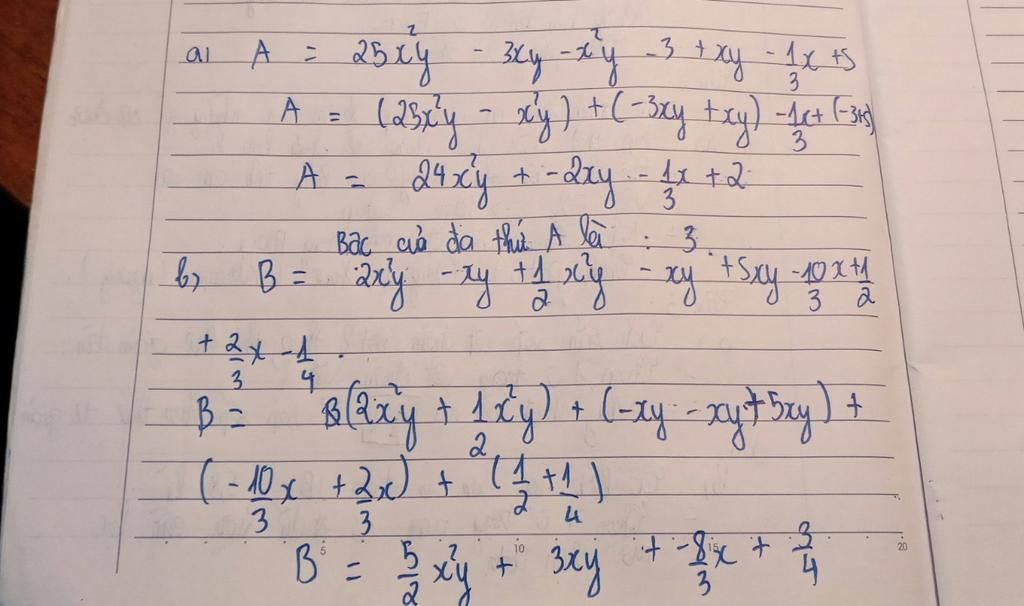 a) A = 25x²y - 3xy - x²y - 3 + xy - 1/3 x + 5
A = (25x²y - x²y) + (-3xy + xy) - 1/3 x + (-3+5)
A = 24x²y + -2xy - 1/3 x + 2
Bậc của đa thức A là : 3.
b, B = 2x²y - xy + 1/2 x²y - xy + 5xy - 10/3 x + 1/2
+ 2/3 x - 1/4 .
B = (2x²y + 1/2 x²y) + (-xy - xy + 5xy) +
(-10/3 x + 2/3 x) + (1/2 + 1/4)
B = 5/2 x²y + 3xy + -8/3 x + 3/4
5 10 15 20